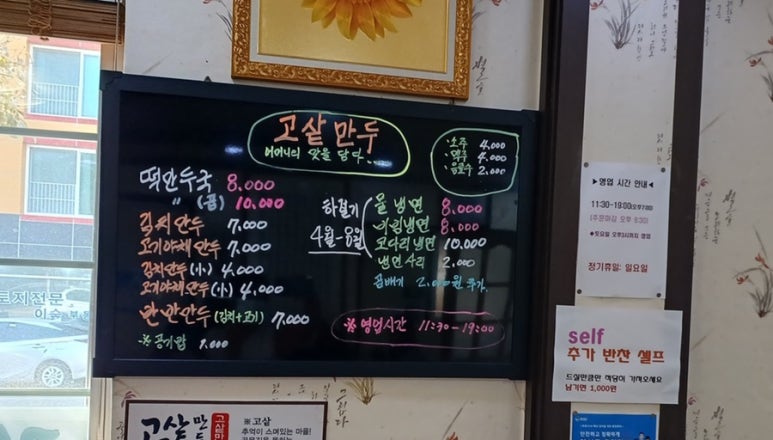 고샅만두
어머니의 맛을 담다..
·소주 4,000
·맥주 4,000
·음료수 2,000
떡만두국 8,000
〃 (곱) 10,000
김치만두 7,000
고기야채만두 7,000
김치만두(小) 4,000
고기야채만두(小) 4,000
반반만두(김치+고기) 7,000
※공기밥 1,000
하절기
4月-8月
물냉면 8,000
비빔냉면 8,000
코다리냉면 10,000
냉면사리 2,000
곱배기 2,000원 추가
※영업시간 11:30-19:00
▶영업 시간 안내◀
11:30-19:00(오후7:00)
(주문마감 오후 6:30)
◈토요일 오후3시까지 영업
정기휴일: 일요일
self
추가 반찬 셀프
드실만큼만 적당히 가져오세요
남기면 1,000원
고샅만두
※ 고샅
추억이 스며있는 마을!